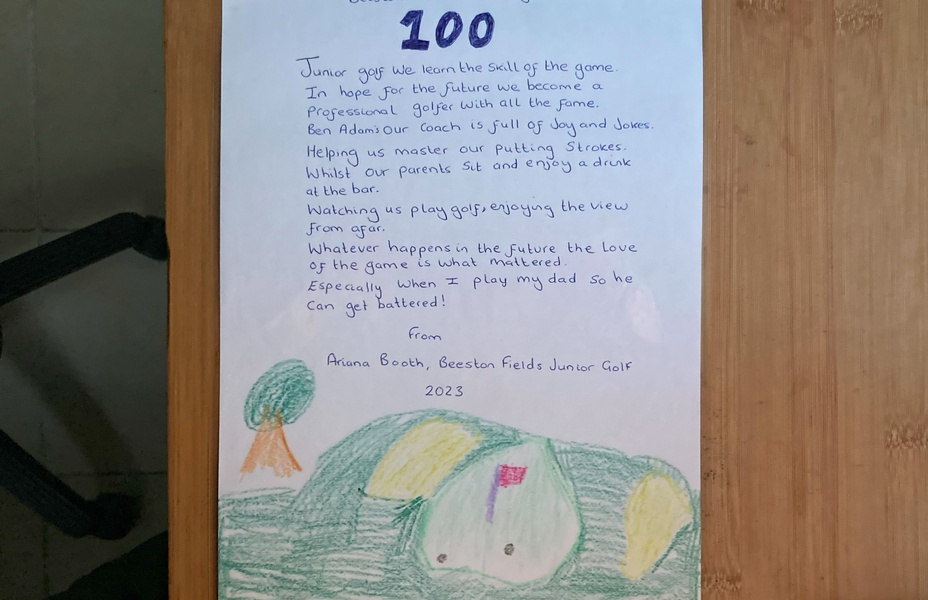 100
Junior golf we learn the skill of the game.
In hope for the future we become a
Professional golfer with all the fame.
Ben Adam's our coach is full of Joy and Jokes.
Helping us master our putting Strokes.
Whilst our parents sit and enjoy a drink
at the bar.
Watching us play golf, enjoying the view
from afar.
Whatever happens in the future the love
of the game is what mattered.
Especially when I play my dad so he
can get battered!
From
Ariana Booth, Beeston Fields Junior Golf
2023